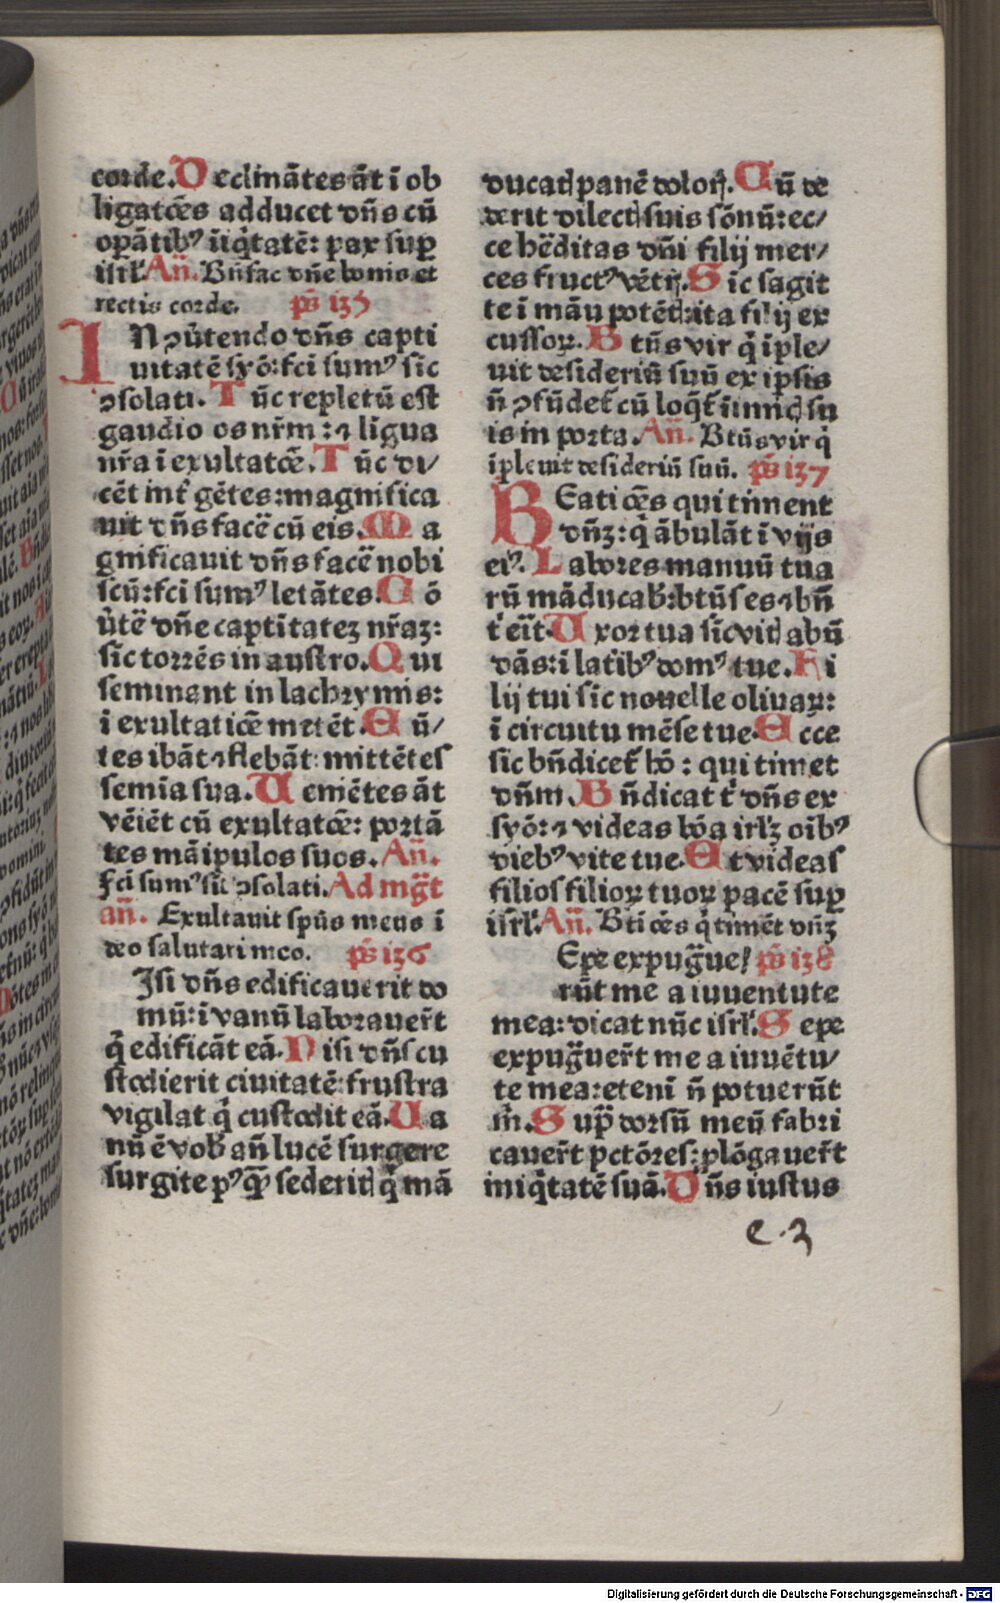 corde. Declinātes āt ī ob
ligatōes adducet dn̄s cū
opātibꝰ īiq̄tatē: pax suꝑ
isrl̄. An̄. Bn̄fac dn̄e bonis et
rectis corde. ps̄ 135
IN ꝯūtendo dn̄s capti
uitatē syō: fcī sumꝰ sic
ꝯsolati. Tūc repletū est
gaudio os nr̄m: ⁊ ligua
nr̄a ī exultatōe. Tūc di/
cēt int̄ gētes: magnifica
uit dn̄s facē cū eis. Ma
gnificauit dn̄s facē nobi
scū: fcī sumꝰ letātes. Cō
ūtē dn̄e captitatez nr̄az:
sic torrēs in austro. Qui
seminant in lachrymis:
ī exultatiōe metēt. Eū/
tes ibāt ⁊ flebāt: mittētes
semīa sua. Ueniētes āt
vēiēt cū exultatōe: portā
tes māipulos suos. An̄.
Fcī sumꝰ sic ꝯsolati. Ad mg̅t
an̄. Exultauit sp̄us meus ī
deo salutari meo. ps̄ 136
Isi dn̄s edificauerit do
mū: ī vanū laborauer̄t
q̄ edificāt eā. Nisi dn̄s cu
stodierit ciuitatē: frustra
vigilat q̄ custodit eā. Ua
nū ē vob̄ an̄ lucē surgere
surgite pꝰꝙ̄ sederit̄ q̄ mā
ducat̄ panē dolor̄. Cū de
derit dilect̄ suis sōnū: ec/
ce hēditas dn̄i filij mer/
ces fructꝰ vētr̄. Sic sagit
te ī māu potēt̄: ita filij ex
cussoꝝ. Btūs vir q̄ iple/
uit desideriū suū ex ipsis
n̄ ꝯfūdet̄ cū loq̄t̄ īimic̄ su
is in porta. An̄. Btūs vir q̄
ipleuit desideriū suū. ps̄ 137
BEati oēs qui timent
dn̄z: q̄ ābulāt ī vijs
eiꝰ. Labores manuū tua
rū māducab̄: btūs es ⁊ bn̄
t̄ eīt. Uxor tua sic vit̄ abū
dās: ī lat̄ibꝰ domꝰ tue. Fi
lij tui sic nouelle oliuaꝝ:
ī circuitu mēse tue. Ecce
sic bn̄dicet̄ hō: qui timet
dn̄m. Bn̄dicat t̄ dn̄s ex
syō: ⁊ videas bōa irl̄z oībꝰ
diebꝰ vite tue. Et videas
filios filioꝝ tuoꝝ pacē suꝑ
isrl̄. An̄. Bti oēs q̄ timēt dn̄z
Epe expug̅ue ps̄ 138
rūt me a iuuentute
mea: dicat nūc isrl̄. Sepe
expug̅uer̄t me a iuuētu/
te mea: eteni n̄ potuerūt
m̄. Sup̄ dorsū meū fabri
cauer̄t pctōres: plōgauer̄t
iniq̄tatē suā. Dn̄s iustus
c.3
Digitalisierung gefördert durch die Deutsche Forschungsgemeinschaft - DFG